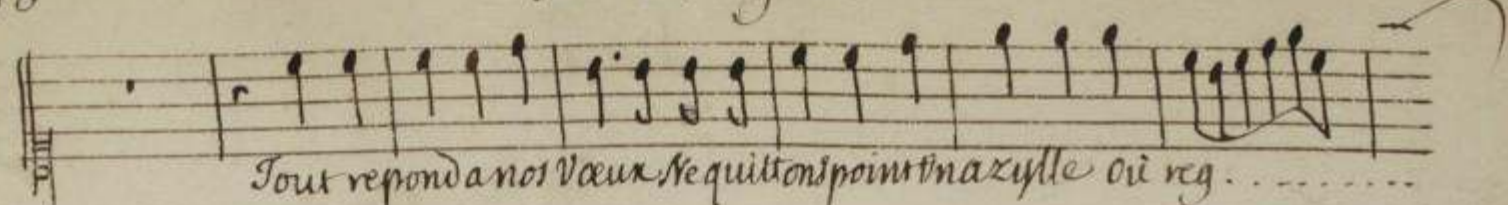 Tout repond a nos Vœux Ne quittons point Un azylle Où reg. . . . . . . . . .